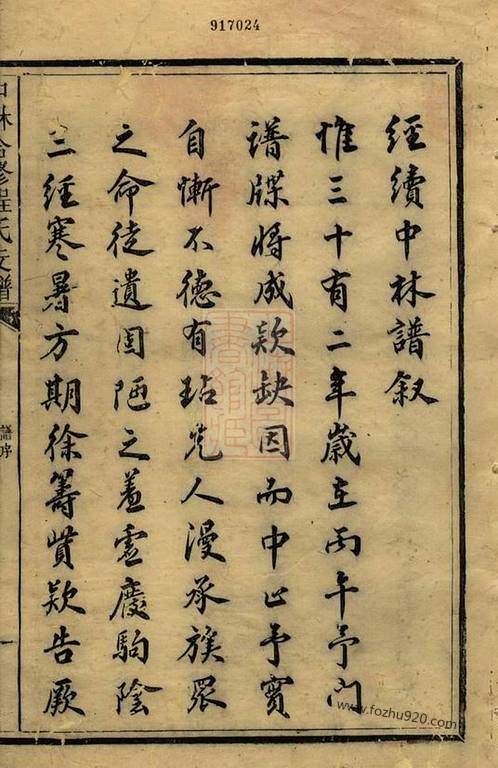 917024
經續中林譜叙
惟三十有二年歲在丙午予門
譜牒將成欵缺因而中止予實
自慚不德有玷先人漫承族眾
之命徒遺固陋之羞虛廢駒陰
三經寒暑方期徐籌貲欵告厥
林合修程氏支譜
譜序
一
www.fozhu920.com